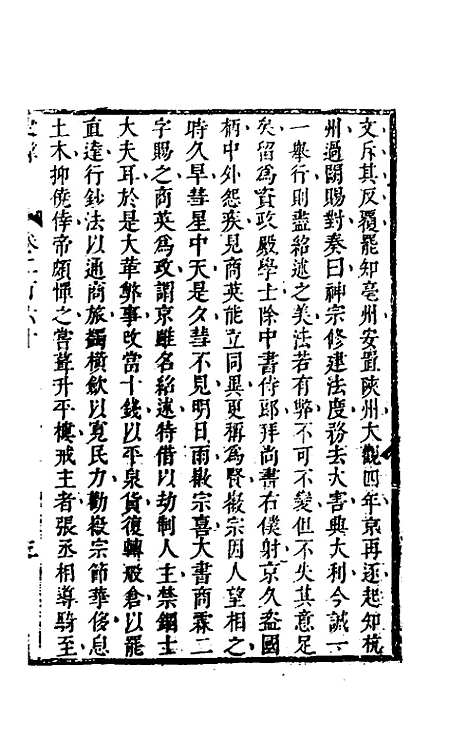 文斥其反覆罷知亳州安置陜州大觀四年京再逐起知杭
州過闕賜對奏曰神宗修建法度務去大害興大利今誠一
一舉行則盡紹述之美法若有弊不可不變但不失其意足
矣留爲資政殿學士除中書侍郎拜尚書右僕射京久盗國
柄中外怨疾見商英能立同異更稱爲賢徽宗因人望相之
時久旱彗星中天是夕彗不見明日雨徽宗喜大書商霖二
字賜之商英爲政謂京雖名紹述特借以劫制人主禁錮士
大夫耳於是大革弊事改當十錢以平泉貨復轉般倉以罷
直達行鈔法以通商旅蠲橫歛以寬民力勸徽宗節華侈息
土木抑僥倖帝頗憚之嘗葺升平樓戒主者張丞相導騎至
卷二百六十
三